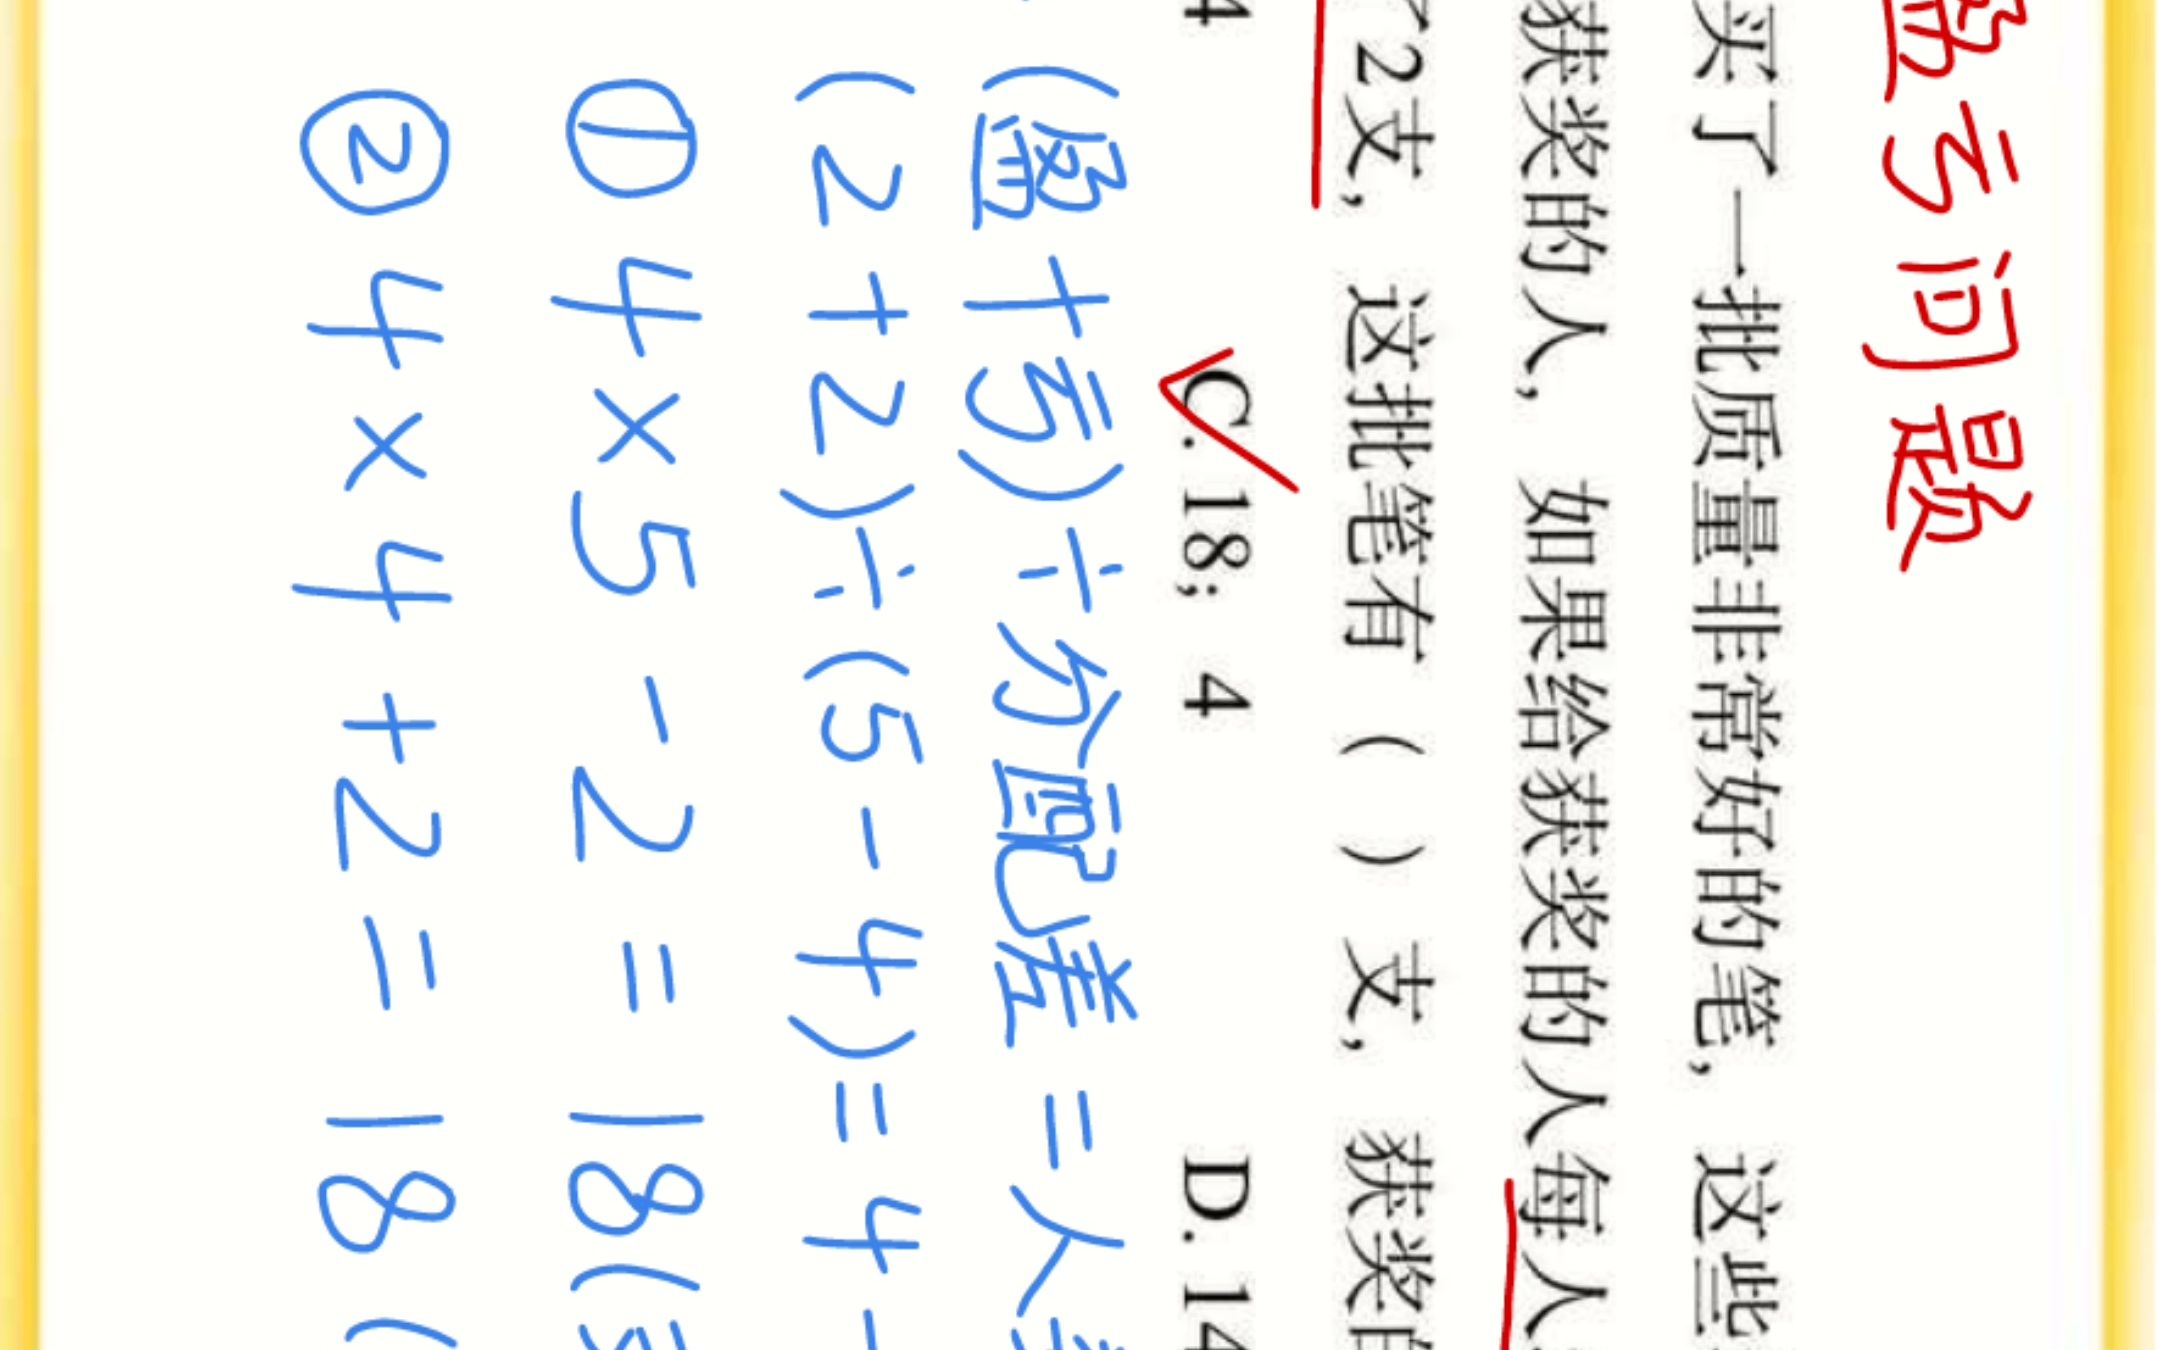 盈亏问题
买了一批质量非常好的笔，这些
获奖的人，如果给获奖的人每人
了2支，这批笔有（ ）支，获奖的
4 C. 18；4 D. 14
(盈+亏)÷分配差=人数
(2+2)÷(5-4)=4
① 4×5-2=18(
② 4×4+2=18(